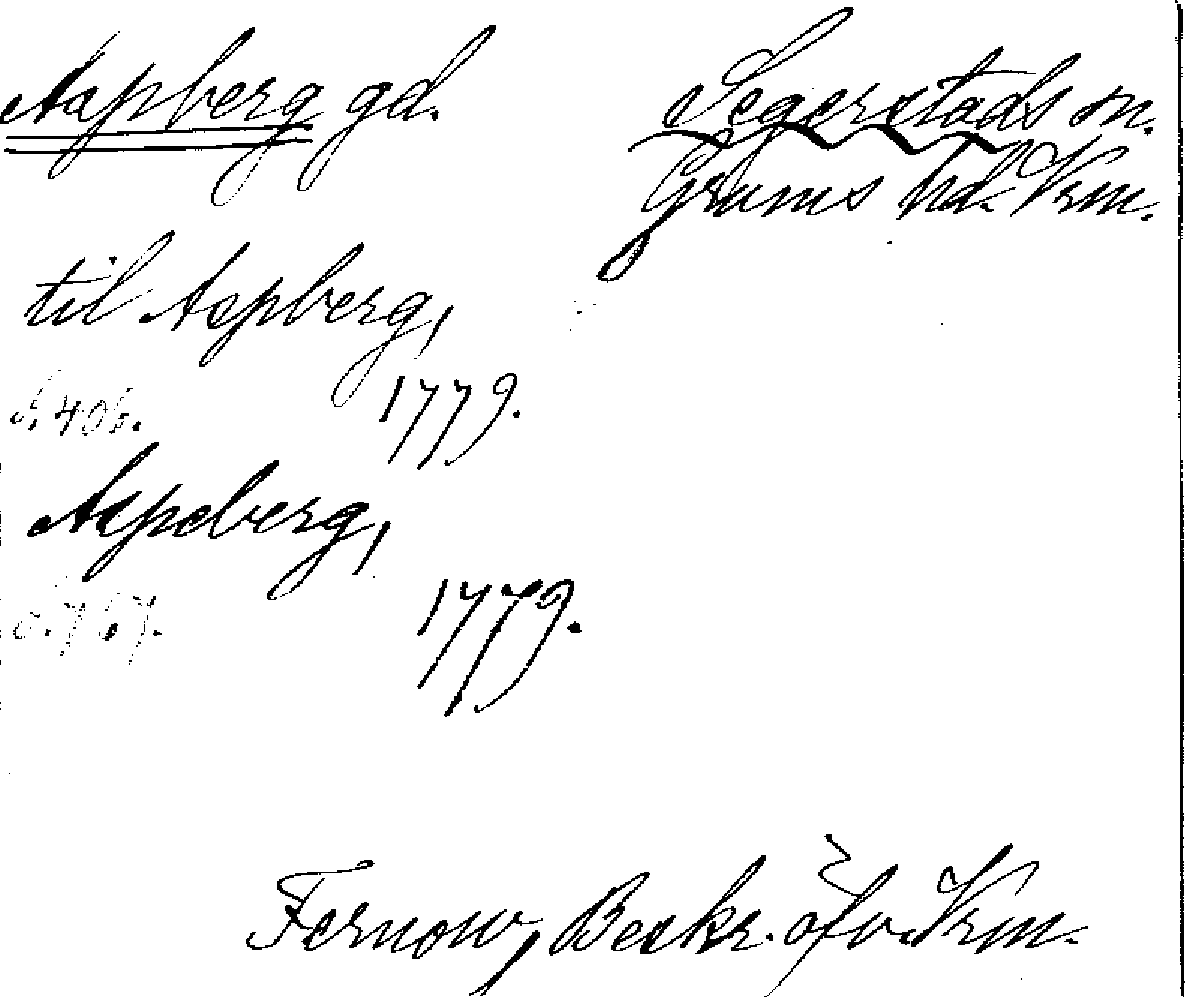 Aspberg gd.
Segerstads sn.
Grums hd. Vrm.
til Aspberg,
s. 406. 1779.
Aspeberg,
s. 767. 1779.
Fernow, Beskr. öfv. Vrm.